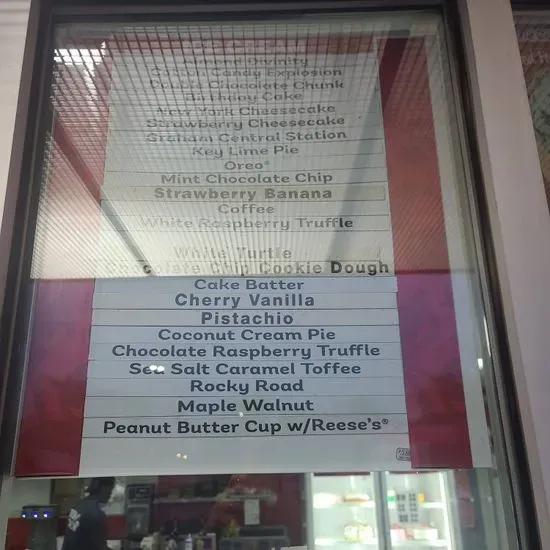 Almond Divinity
Cotton Candy Explosion
Double Chocolate Chunk
Birthday Cake
New York Cheesecake
Strawberry Cheesecake
Graham Central Station
Key Lime Pie
Oreo®
Mint Chocolate Chip
Strawberry Banana
Coffee
White Raspberry Truffle
White Turtle
Chocolate Chip Cookie Dough
Cake Batter
Cherry Vanilla
Pistachio
Coconut Cream Pie
Chocolate Raspberry Truffle
Sea Salt Caramel Toffee
Rocky Road
Maple Walnut
Peanut Butter Cup w/Reese's®